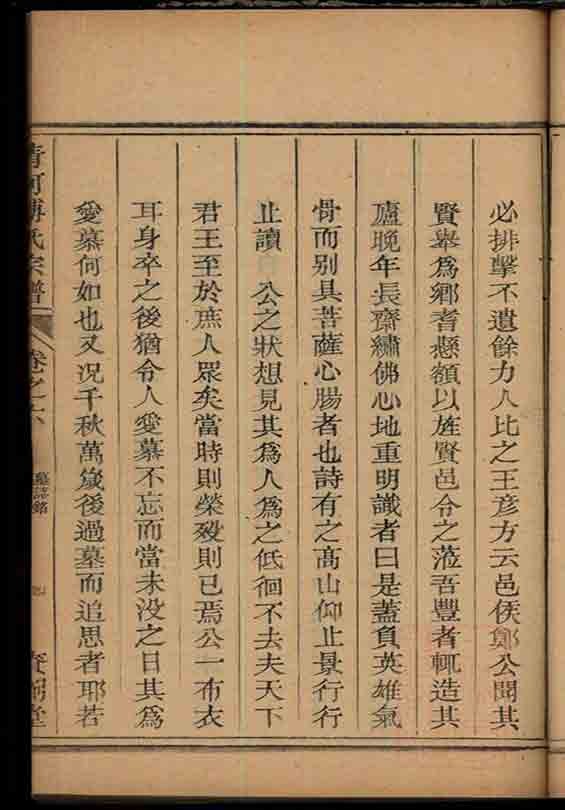 必排擊不遺餘力人比之王彥方云邑侯鄭公聞其
賢舉為鄉耆懸額以旌賢邑令之蒞吾豐者輒造其
廬晚年長齋繡佛心地重明識者曰是蓋負英雄氣
骨而别具菩薩心腸者也詩有之高山仰止景行行
止讀公之狀想見其為人為之低徊不去夫天下
君王至於庶人眾矣當時則榮歿則已焉公一布衣
耳身卒之後猶令人愛慕不忘而當未没之日其為
愛慕何如也又况千秋萬歲後過墓而追思者耶若
清河傅氏宗譜
卷之六
墓誌銘
堂